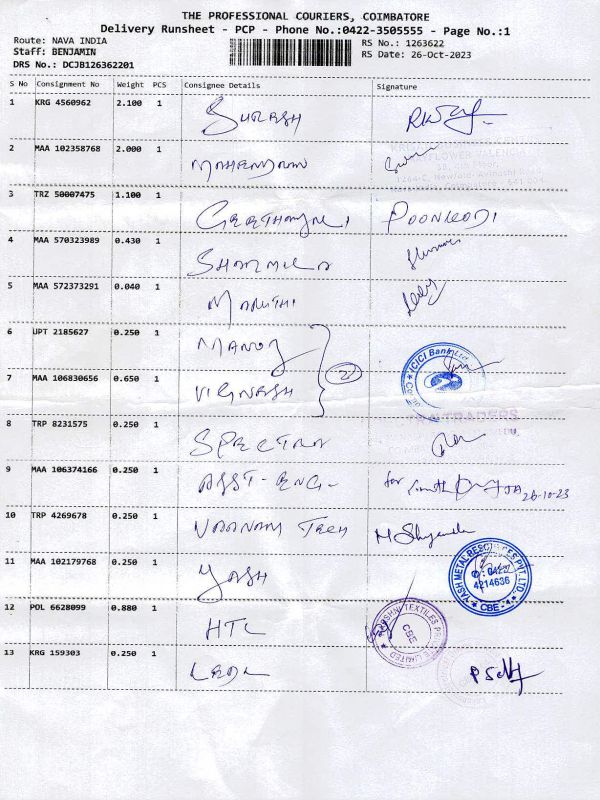 THE PROFESSIONAL COURIERS, COIMBATORE
Delivery Runsheet - PCP - Phone No.:0422-3505555 - Page No.:1
Route: NAVA INDIA
RS No.: 1263622
Staff: BENJAMIN
RS Date: 26-Oct-2023
DRS No.: DCJB126362201
S No Consignment No Weight PCS Consignee Details Signature
1 KRG 4560962 2.100 1 SURESH
2 MAA 102358768 2.000 1 MAHENDRAN
3 TRZ 50007475 1.100 1 GEETHANJALI POONKODI
4 MAA 570323989 0.430 1 SHARMILA
5 MAA 572373291 0.040 1 MARUTHI
6 UPT 2185627 0.250 1 MANOJ ICICI Bank Ltd
2
7 MAA 106830656 0.650 1 VIGNESH
TRADERS
8 TRP 8231575 0.250 1 SPECTRA
9 MAA 106374166 0.250 1 ASST-ENG- for 26-10-23
10 TRP 4269678 0.250 1 VAANAM TECH
11 MAA 102179768 0.250 1 YASH YASH METAL PVT. LTD. 0422 4214636 CBE - 4
12 POL 6628099 0.880 1 HTL TEXTILES PRIVATE LIMITED CBE
13 KRG 159303 0.250 1